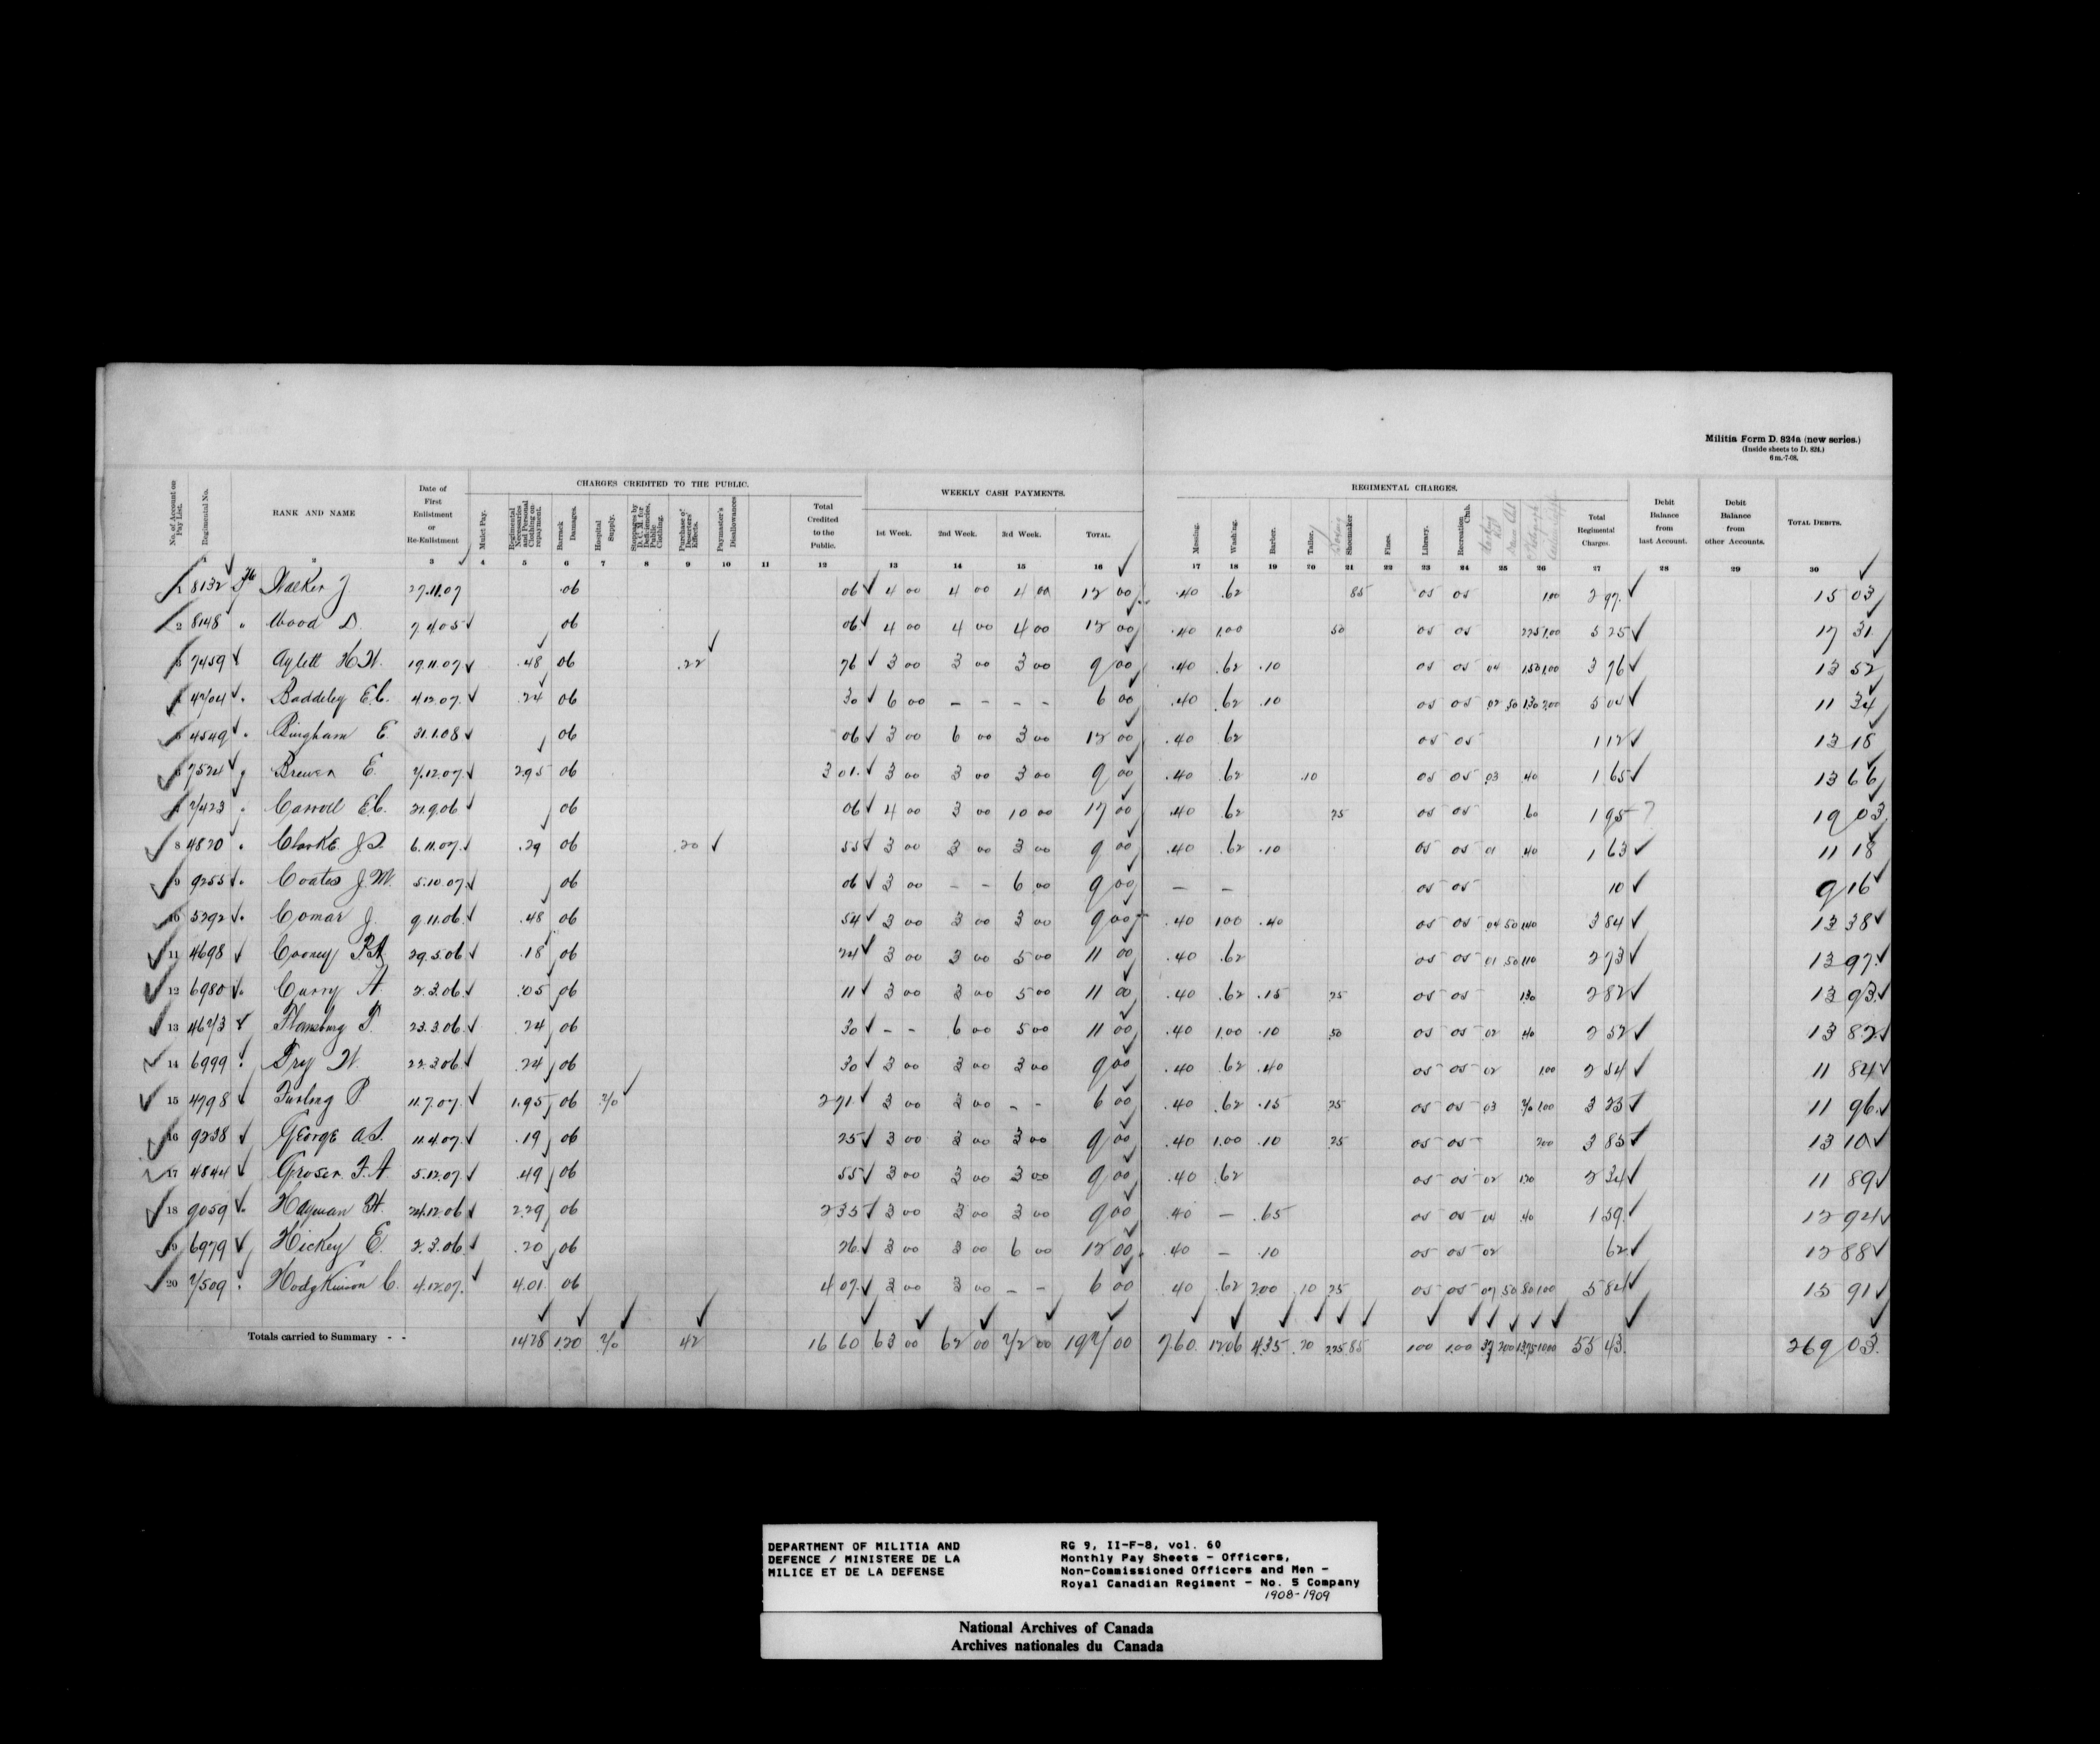 Militia Form D. 824a (new series.)
(Inside sheets to D. 824.)
6 m.-7-08.
No. of Account on Pay List.
Regimental No.
RANK AND NAME
Date of First Enlistment or Re-Enlistment
CHARGES CREDITED TO THE PUBLIC.
Mulct Pay.
Regimental Necessaries and Personal Clothing on repayment.
Barrack Damages.
Hospital Supply.
Stoppages by D. C. M. for Deficiencies, Public Clothing.
Purchase of Deserters' Effects.
Paymaster's Disallowances
Total Credited to the Public.
WEEKLY CASH PAYMENTS.
1st Week. 2nd Week. 3rd Week. TOTAL.
REGIMENTAL CHARGES.
Messing. Washing. Barber. Tailor. Shoemaker Fines. Library. Recreation Club.
Total Regimental Charges.
Debit Balance from last Account.
Debit Balance from other Accounts.
TOTAL DEBITS.
2 3 4 5 6 7 8 9 10 11 12 13 14 15 16 17 18 19 20 21 22 23 24 25 26 27 28 29 30
1 8132 Pte Walker J 27.11.07 .06 06 4 00 4 00 4 00 12 00 .40 .62 85 05 05 1.00 2 97 15 03
2 8148 " Wood D. 7.4.05 06 06 4 00 4 00 4 00 12 00 .40 1.00 50 05 05 2.25 1.00 5 25 17 31
3 7459 Aylett H.W. 19.11.07 .48 06 .22 76 3 00 3 00 3 00 9 00 .40 .62 .10 05 05 04 1.50 1.00 3 76 13 52
4 4704 " Baddeley E.C. 4.12.07. .24 06 30 6 00 - - - - 6 00 .40 .62 .10 05 05 .02 50 1.30 2.00 5 04 11 34
5 4549 " Bingham E 31.1.08 06 06 3 00 6 00 3 00 12 00 .40 62 05 05 1 12 13 18
6 7524 " Brewer E. 7.12.07 2.95 06 3 01. 3 00 3 00 3 00 9 00 .40 .62 .10 05 05 .03 .40 1 65 13 66
7 7423 " Carroll E.C. 21.9.06 06 06 4 00 3 00 10 00 17 00 .40 .62 25 05 05 .60 1 95 ? 19 03
8 4820 " Clarke J.S. 6.11.07. .29 06 .20 55 3 00 3 00 3 00 9 00 .40 .62 .10 05 05 01 .40 1 63 11 18
9 9255 " Coates J.W. 5.10.07. 06 06 3 00 - - 6 00 9 00 - - 05 05 10 9 16
10 5292 " Comar J. 9.11.06. .48 06 54 3 00 3 00 3 00 9 00 .40 1.00 .40 05 05 .04 50 1.40 3 84 13 38
11 4698 Cooney F.A. 29.5.06 .18 06 24 3 00 3 00 5 00 11 00 .40 .62 05 05 .01 .50 1.10 2 73 13 97.
12 6980 " Curry A. 2.3.06. .05 06 11 3 00 3 00 5 00 11 00 .40 .62 .15 25 05 05 1.30 2 82 13 93.
13 4673 Flansburg D. 23.3.06. .24 06 30 - - 6 00 5 00 11 00 .40 1.00 .10 .50 05 05 02 .40 2 52 13 82
14 6999 " Fry W. 22.3.06. .24 06 30 3 00 3 00 3 00 9 00 .40 .62 .40 05 05 02 1.00 2 54 11 84
15 4798 Furlong P. 11.7.07. 1.95 06 .70 2 71 3 00 3 00 - - 6 00 .40 .62 .15 25 05 05 .03 70 1.00 3 25 11 96.
16 9238 George A.S. 11.4.07. .19 06 25 3 00 3 00 3 00 9 00 .40 1.00 .10 25 05 05 2.00 3 85 13 10
17 4844 Groser F.A. 5.12.07 .49 06 55 3 00 3 00 3 00 9 00 .40 .62 05 05 02 1.20 2 34 11 89
18 9059 " Hayman H. 24.12.06 2.29 06 2 35 3 00 3 00 3 00 9 00 .40 - .65 05 05 04 .40 1 59. 12 94
19 6979 Hickey E. 2.3.06. .20 06 26. 3 00 3 00 6 00 12 00 .40 - .10 05 05 02 62 12 88
20 7509 " Hodgkinson C. 4.12.07. 4.01 06 4 07. 3 00 3 00 - - 6 00 .40 .62 2.00 .10 25 05 05 07 50 80 1.00 5 84 15 91
Totals carried to Summary - - 14 78 1.20 .70 42 16 60 63 00 62 00 72 00 197 00 7.60. 12.06 4.35 .20 2.25 85 1.00 1.00 .37 2.00 13.75 10.00 55 43. 269 03.
DEPARTMENT OF MILITIA AND
DEFENCE / MINISTERE DE LA
MILICE ET DE LA DEFENSE
RG 9, II-F-8, vol. 60
Monthly Pay Sheets - Officers,
Non-Commissioned Officers and Men -
Royal Canadian Regiment - No. 5 Company
1908-1909
National Archives of Canada
Archives nationales du Canada